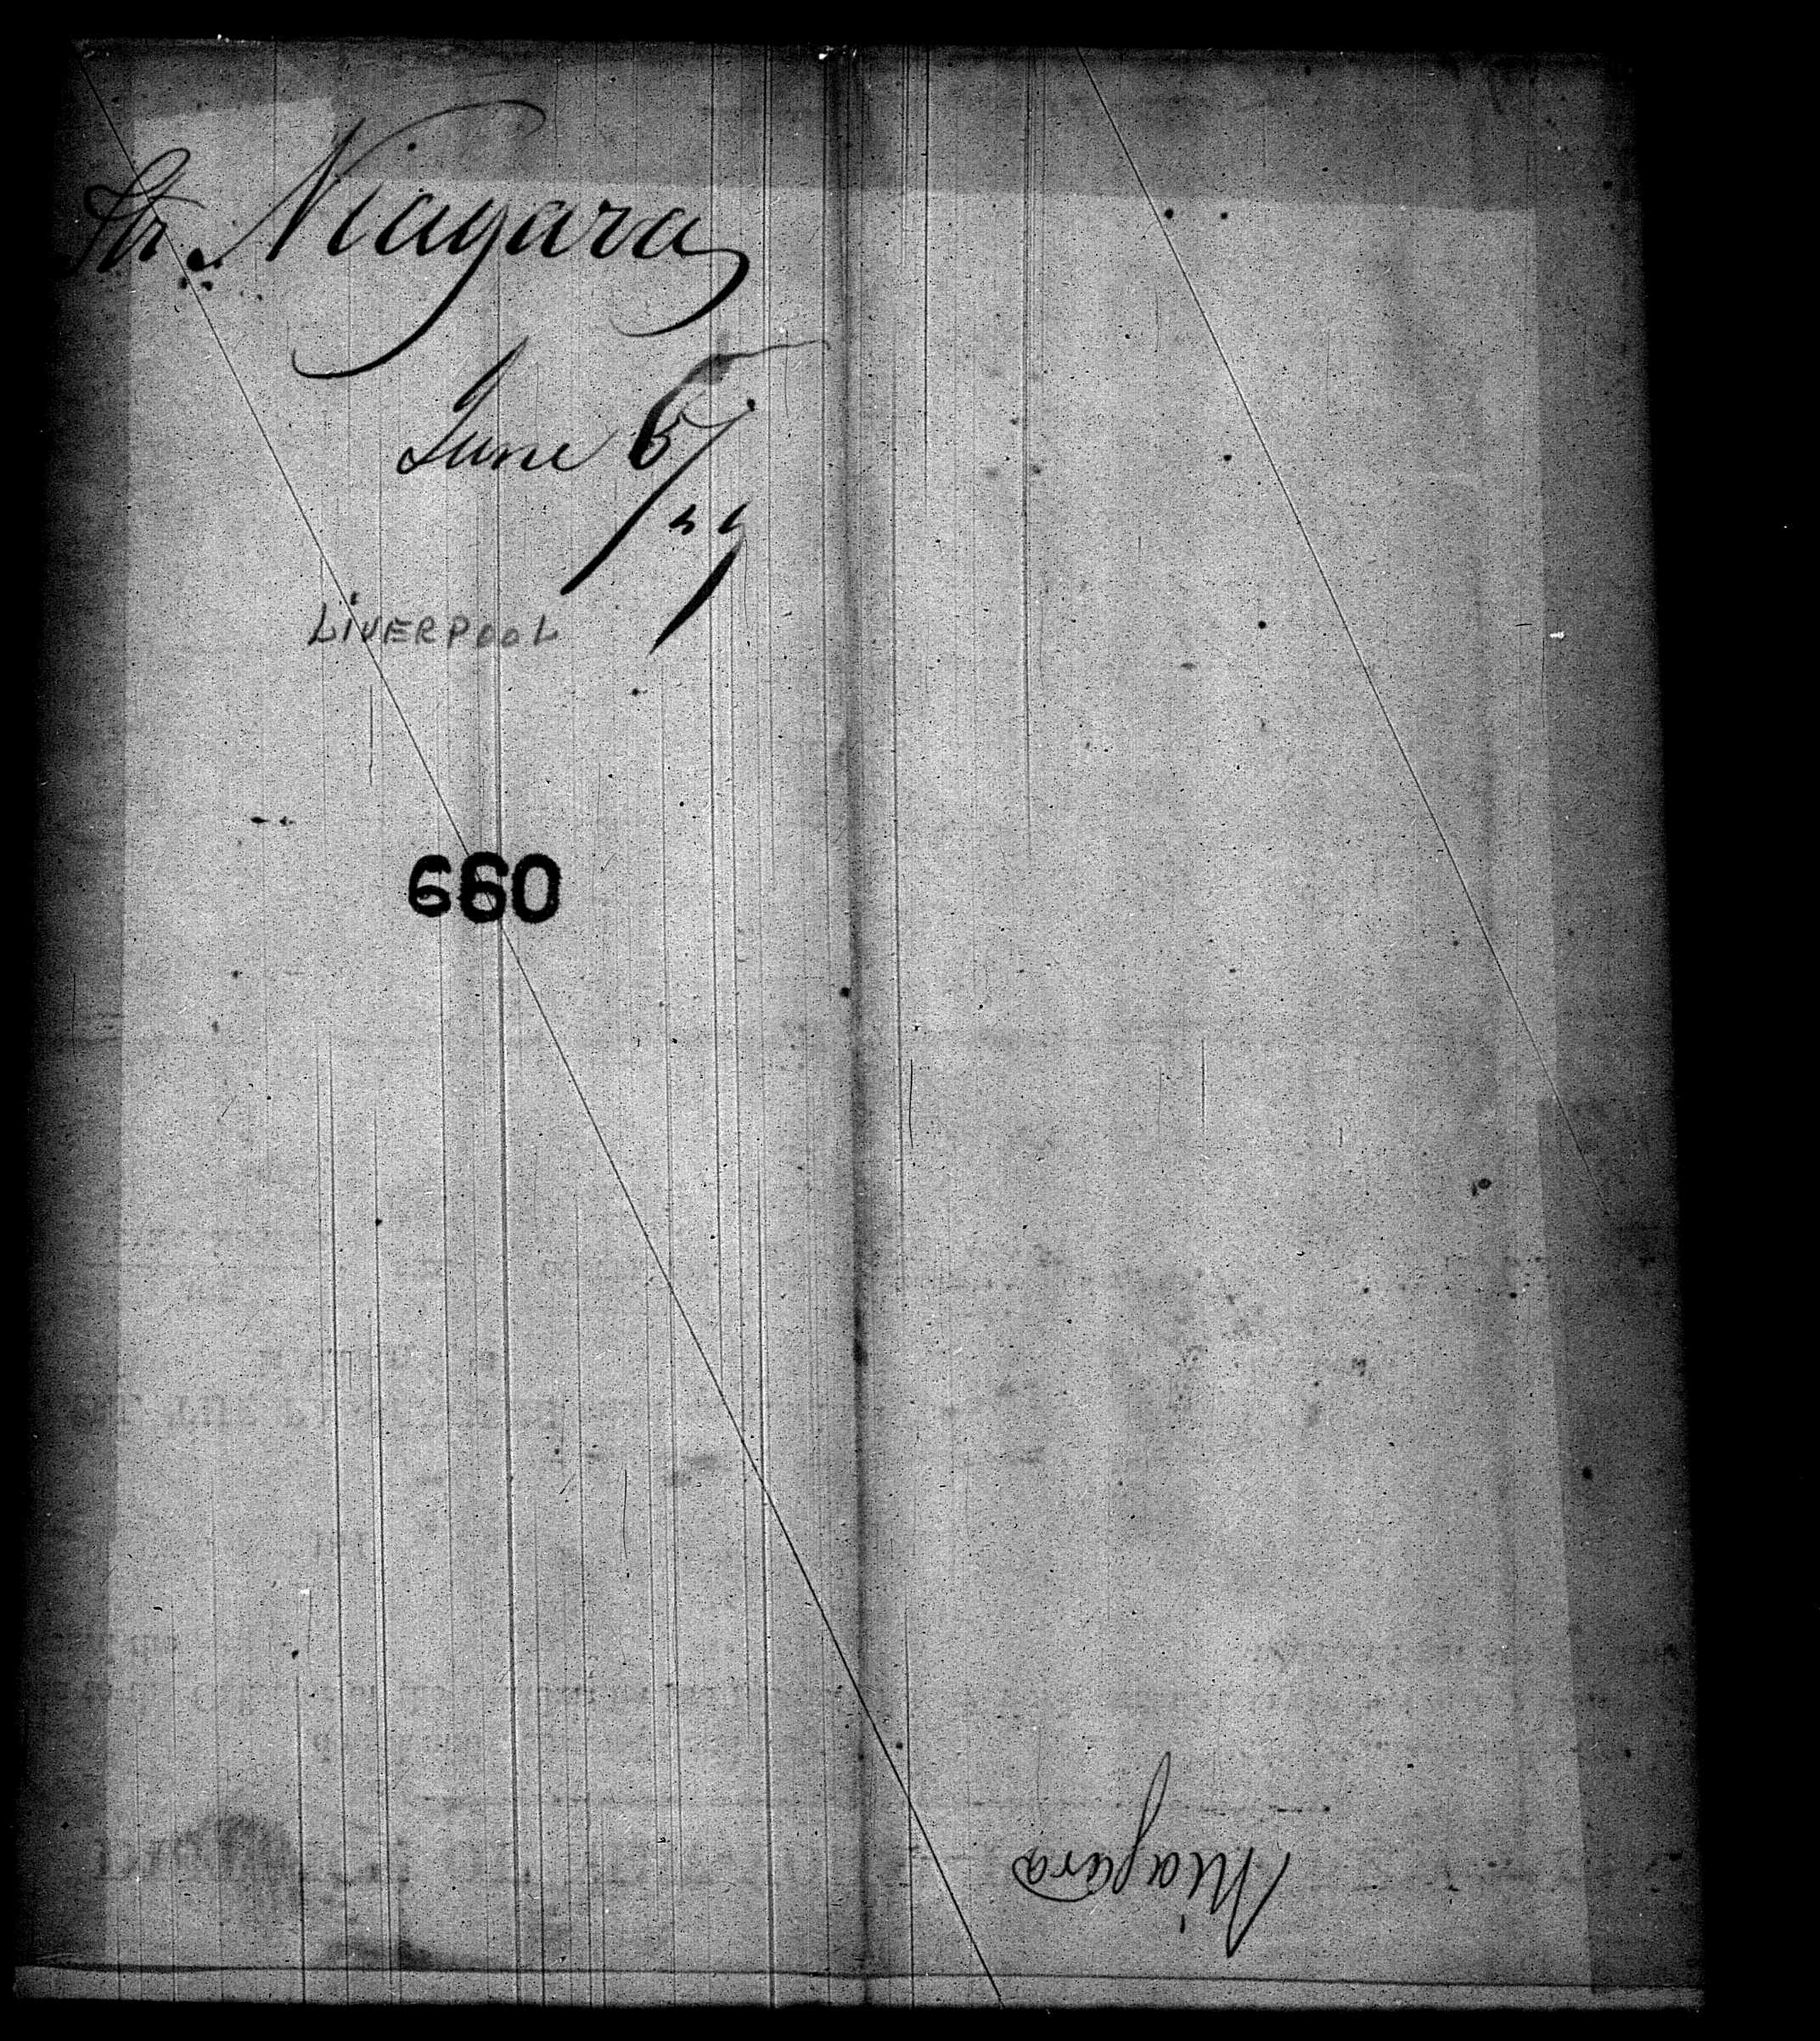 Str Niagara
June 6/
LIVERPOOL
660
Niagara